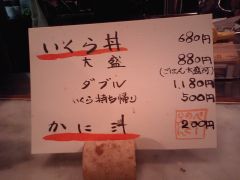 いくら丼 680円
大盛 880円
(ごはん大盛可)
ダブル 1,180円
いくら持ち帰り 500円
かに汁 200円